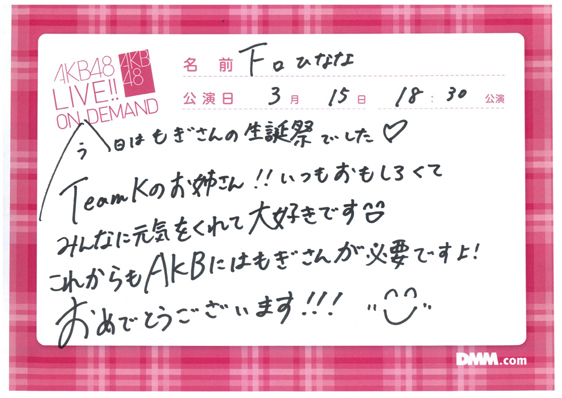 AKB48
LIVE!!
ON DEMAND
AKB
48
名 前 下口ひなな
公演日 3月 15日 18:30 公演
今日はもぎさんの生誕祭でした♡
TeamKのお姉さん!!いつもおもしろくて
みんなに元気をくれて大好きです
これからもAKBにはもぎさんが必要ですよ!
おめでとうございます!!!
DMM.com